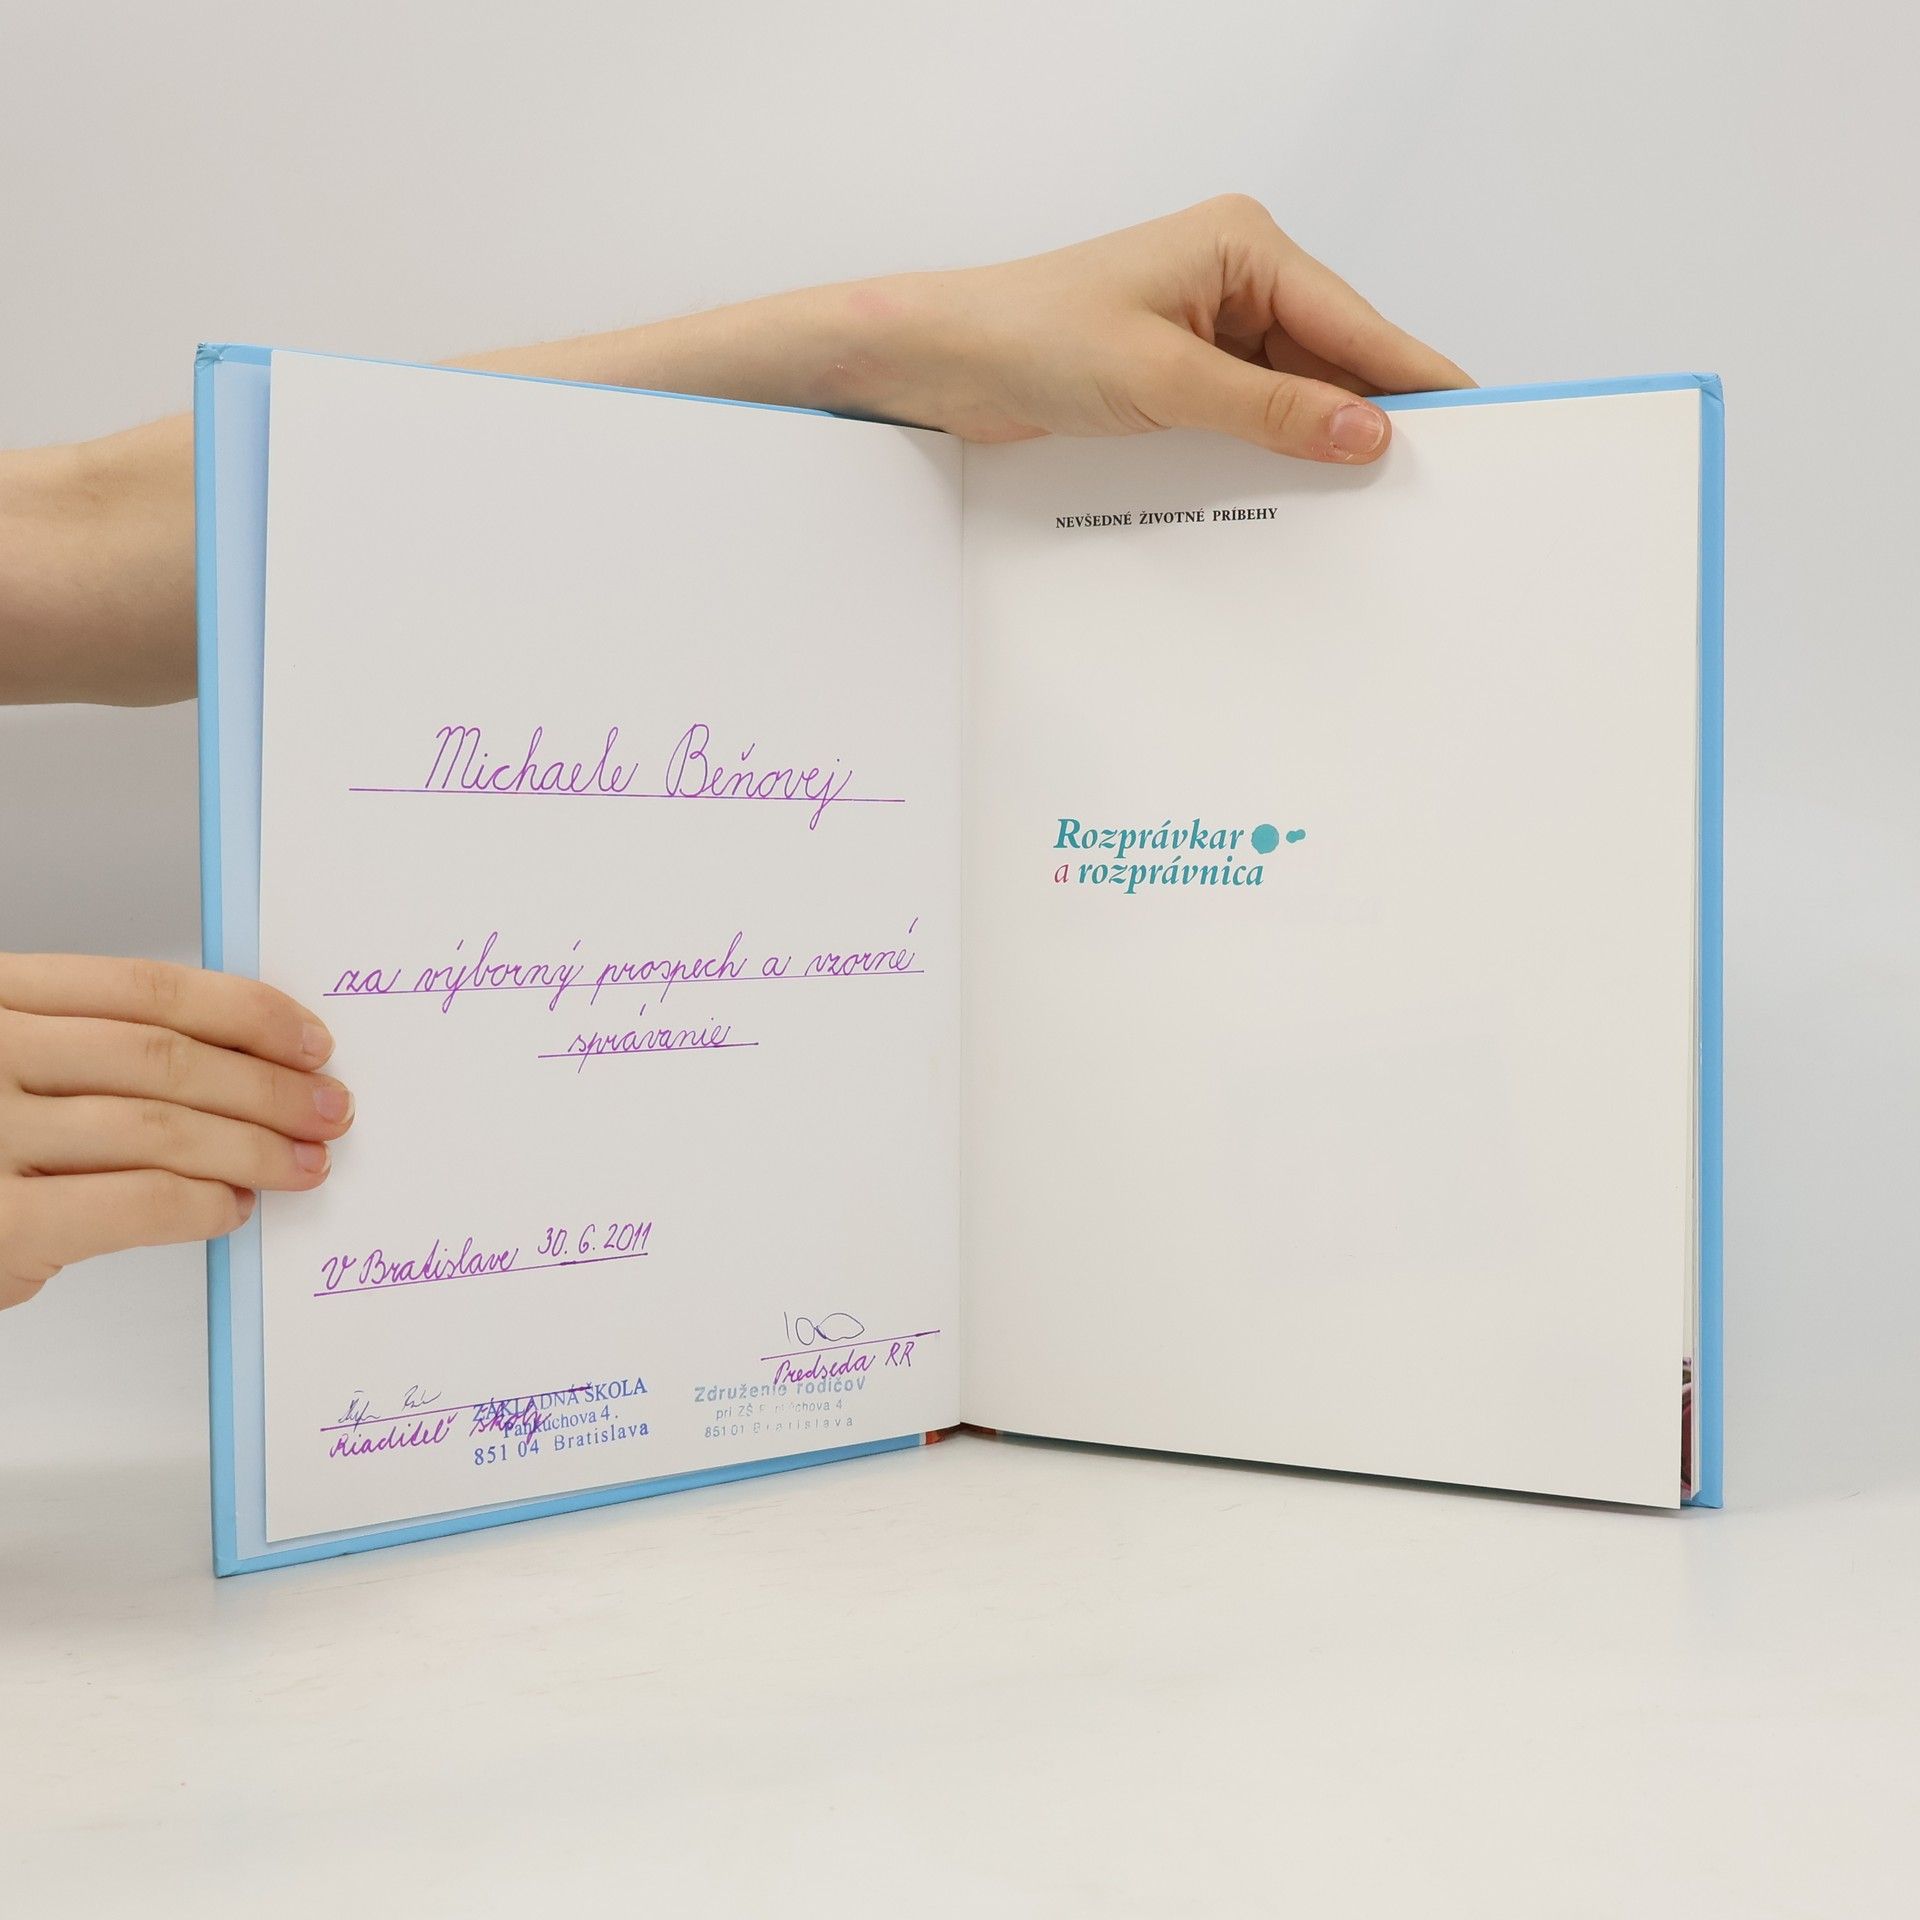 Michaele Beňovej
za výborný prospech a vzorné
správanie
V Bratislave 30.6.2011
Predseda RR
Riaditeľ školy
ZÁKLADNÁ ŠKOLA
Pankúchova 4.
851 04 Bratislava
Združenie rodičov
pri ZŠ Pankúchova 4
851 01 Bratislava
NEVŠEDNÉ ŽIVOTNÉ PRÍBEHY
Rozprávkar
a rozprávnica